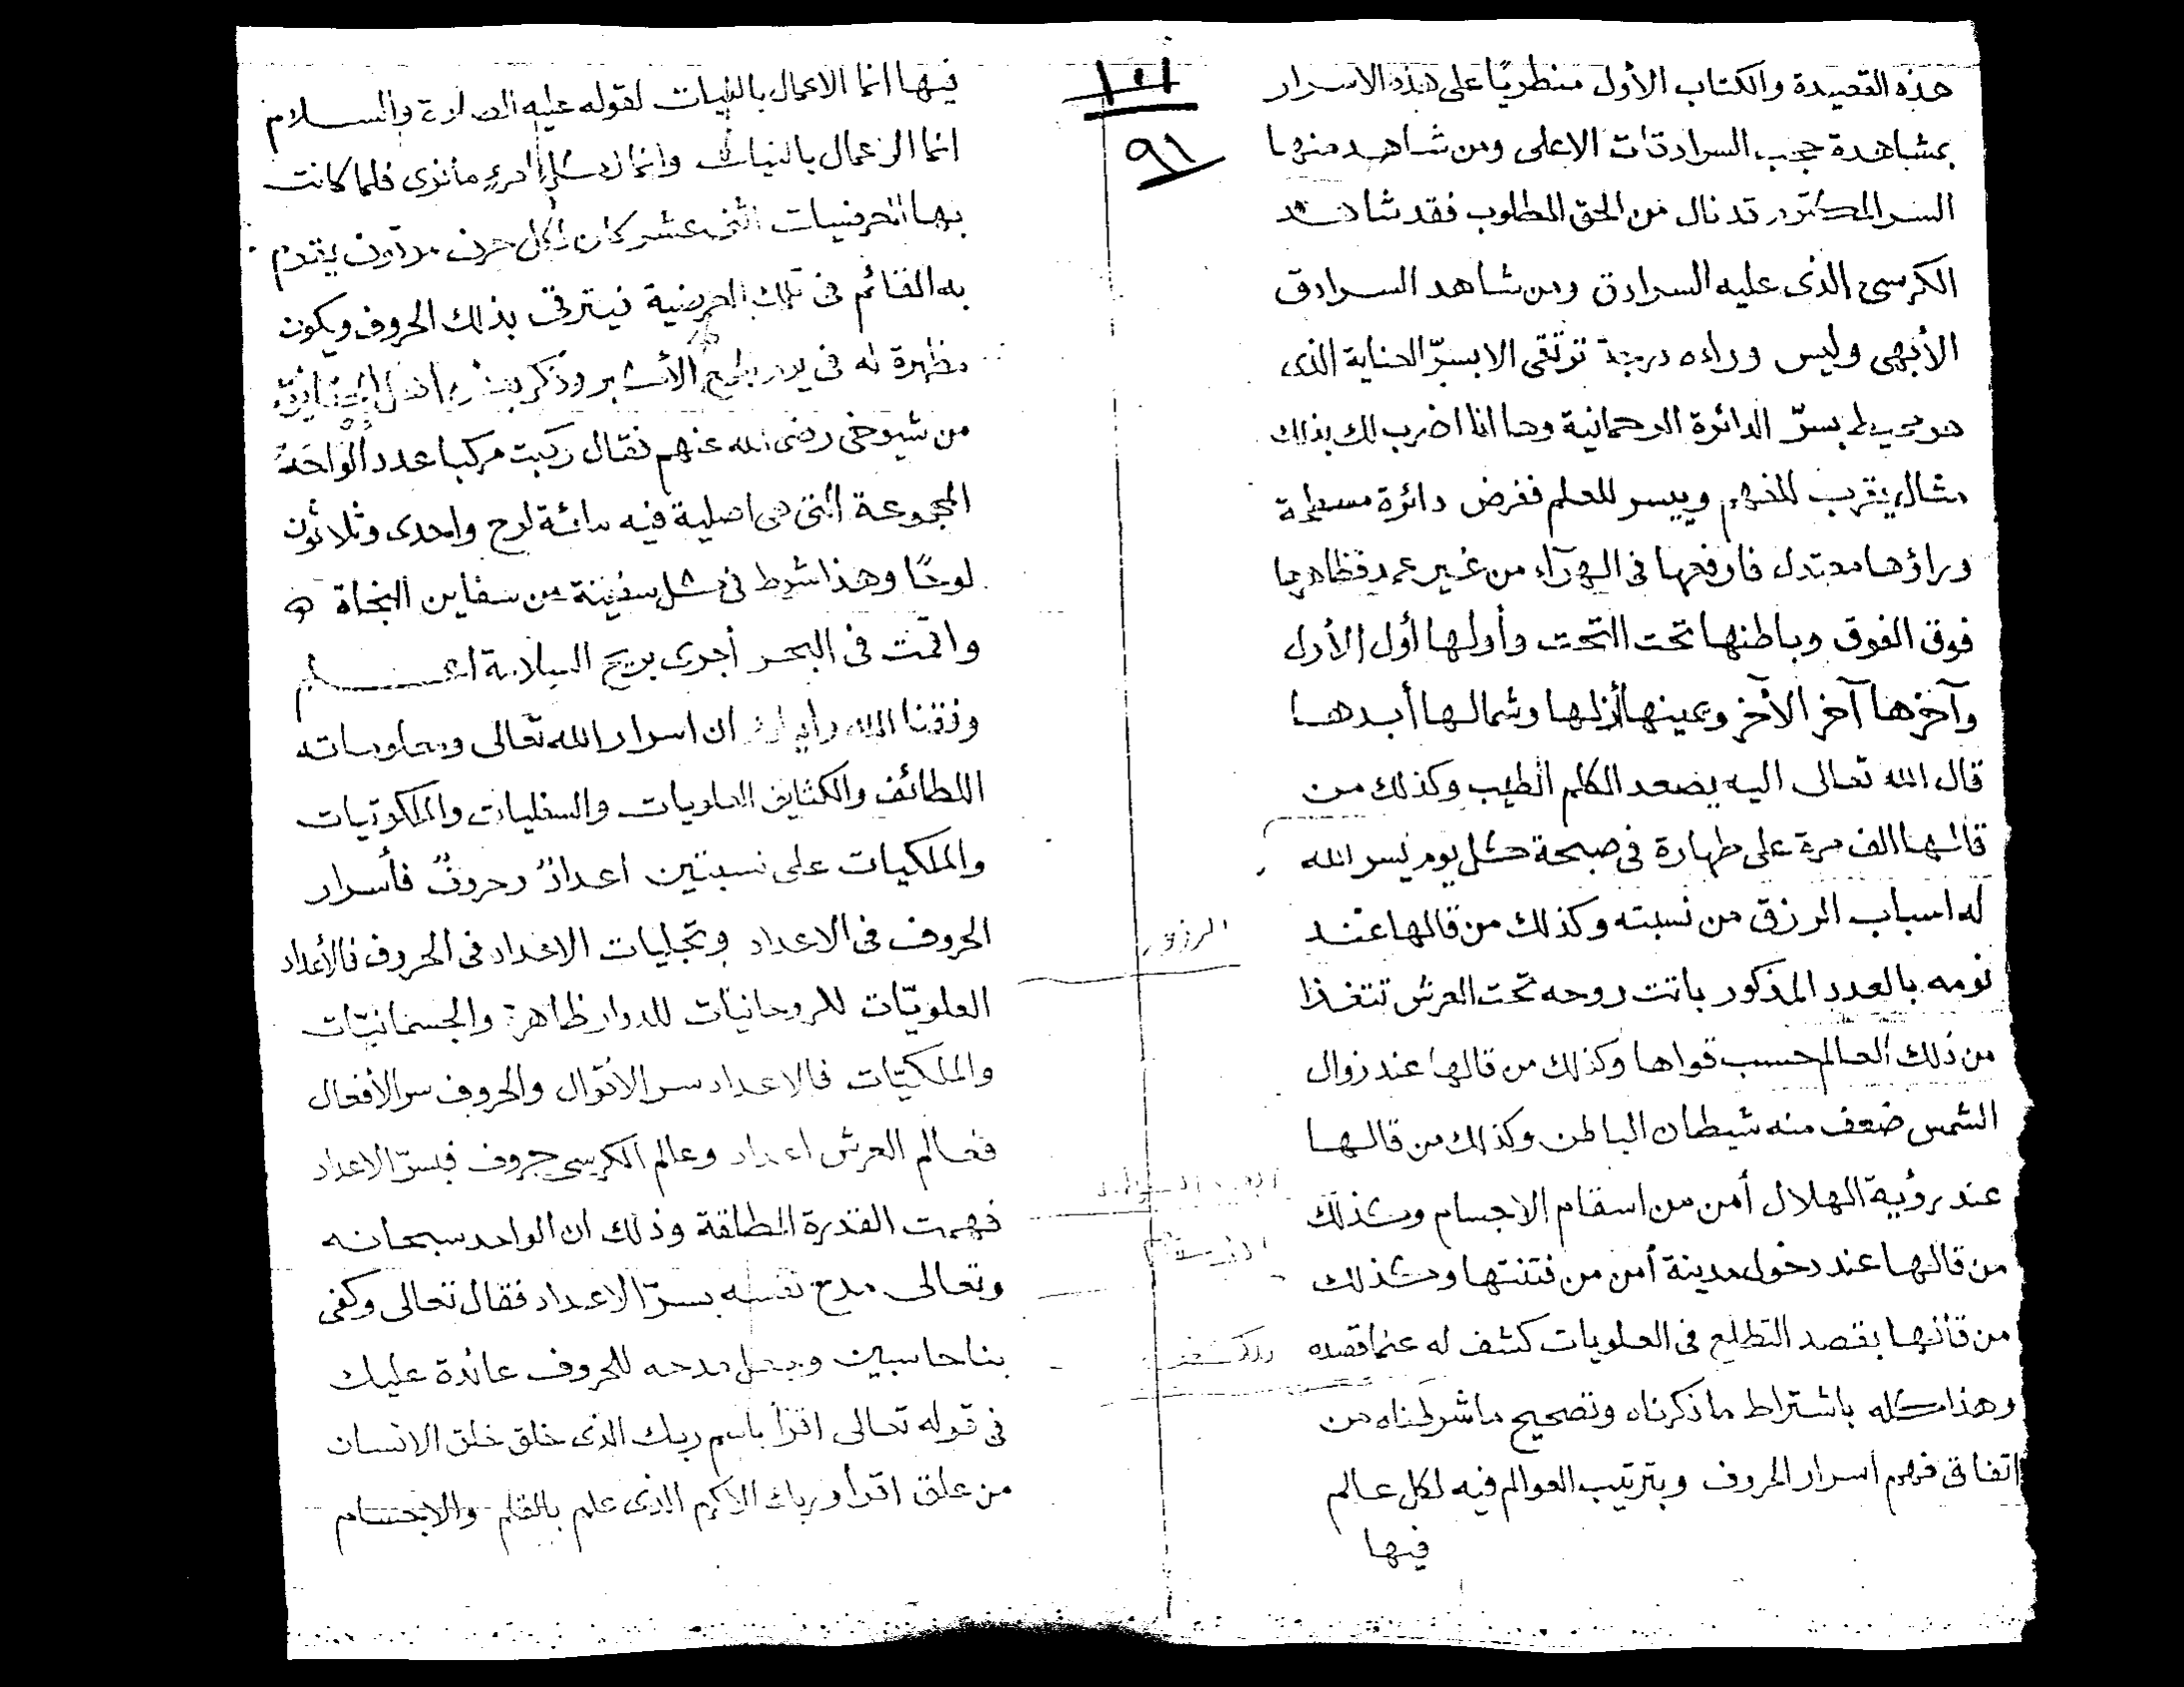 هذه القصيدة والكتاب الأول منطريًا على هذه الاسرار
بمشاهدة حجب السرادقات الاعلى ومن شاهد منها
السر المكتوم قد نال من الحق المطلوب فقد شاهد
الكرسى الذى عليه السرادق ومن شاهد السرادق
الأبهى وليس وراءه درجة ترتقى الا بسرّ العناية الذى
هو محيط بسرّ الدائرة الرحمانية وها انا اضرب لك بذلك
مثال يقرب للفهم وييسر للعلم ففرض دائرة مسطحة
وراؤها معتدل فارفعها فى الهوآء من غير عمد فظاهرها
فوق الفوق وباطنها تحت التحت وأولها أول الأول
وآخرها آخر الآخر ويمينها أزلها وشمالها أبدها
قال الله تعالى اليه يصعد الكلم الطيب وكذلك من
قالها الف مرة على طهارة فى صبحة كل يوم يسر الله
له اسباب الرزق من نسبته وكذلك من قالها عند
نومه بالعدد المذكور باتت روحه تحت العرش تتغذا
من ذلك العالم حسب قواها وكذلك من قالها عند زوال
الشمس ضعف منه شيطان الباطن وكذلك من قالها
عند رؤية الهلال أمن من اسقام الاجسام وكذلك
من قالها عند دخول مدينة أمن من فتنتها وكذلك
من قالها بقصد التطلع فى العلويات كشف له عما قصده
وهذا كله باشتراط ما ذكرناه وتصحيح ما شرطناه من
اتفاق فهم اسرار الحروف وبترتيب العوالم فيه لكل عالم
فيها
١٥١
٩١
الرزق
فيها انما الاعمال بالنيات لقوله عليه الصلاة والسلام
انما الاعمال بالنيات وانما لكل امرءٍ ما نوى فلما كانت
بها الحرفيات اثنى عشر كان لكل حرف يتقدم
به القائم فى تلك فيترقى بذلك الحروف ويكون
مظهرة له فى الأكبر وذكر
من شيوخى رضى الله عنهم فقال ركبت مركبا عدد الواحة
المجموعة التى هى اصلية فيه مائة لوح واحدى وثلاثون
لوحًا وهذا شرط فى كل سفينة من سفاين النجاة
واقمت فى البحر أجرى بريح السلامة اعلم
وفقنا الله واياك ان اسرار الله تعالى ومعلوماته
اللطائف والكثايف العلويات والسفليات والملكوتيات
والملكيات على نسبتين اعدادٌ وحروفٌ فأسرار
الحروف فى الاعداد وتجليات الاعداد فى الحروف فالأعداد
العلويّات للروحانيّات للدوار ظاهرة والجسمانيّات
والملكيّات فالاعداد سر الأقوال والحروف سر الأفعال
فعالم العرش اعداد وعالم الكرسى حروف فبسرّ الاعداد
فهمت القدرة المطلقة وذلك ان الواحد سبحانه
وتعالى مدح نفسه بسرّ الاعداد فقال تعالى وكفى
بنا حاسبين وجعل مدحه للحروف عائدة عليك
فى قوله تعالى اقرأ باسم ربك الذى خلق خلق الانسان
من علق اقرأ وربك الاكرم الذى علم بالقلم والاجسام